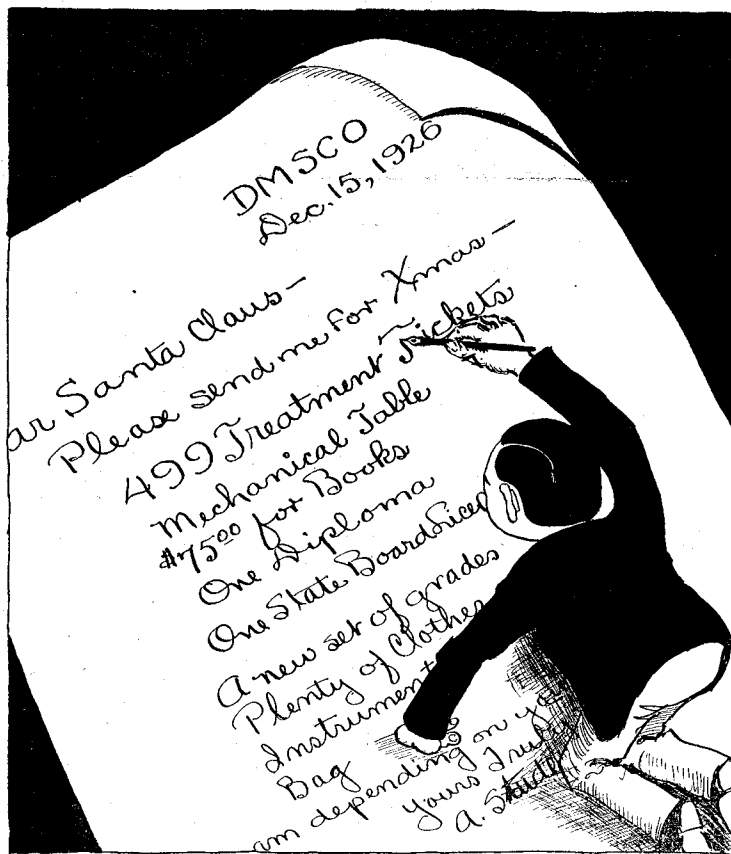 DMSCO
Dec. 15, 1926
ar Santa Claus-
Please send me for Xmas-
499 Treatment Tickets
Mechanical Table
$75.00 for Books
One Diploma
One State Board
A new set of grades
Plenty of Clothes
Instrument
Bag
am depending on yo
yours Truly
A. Stude